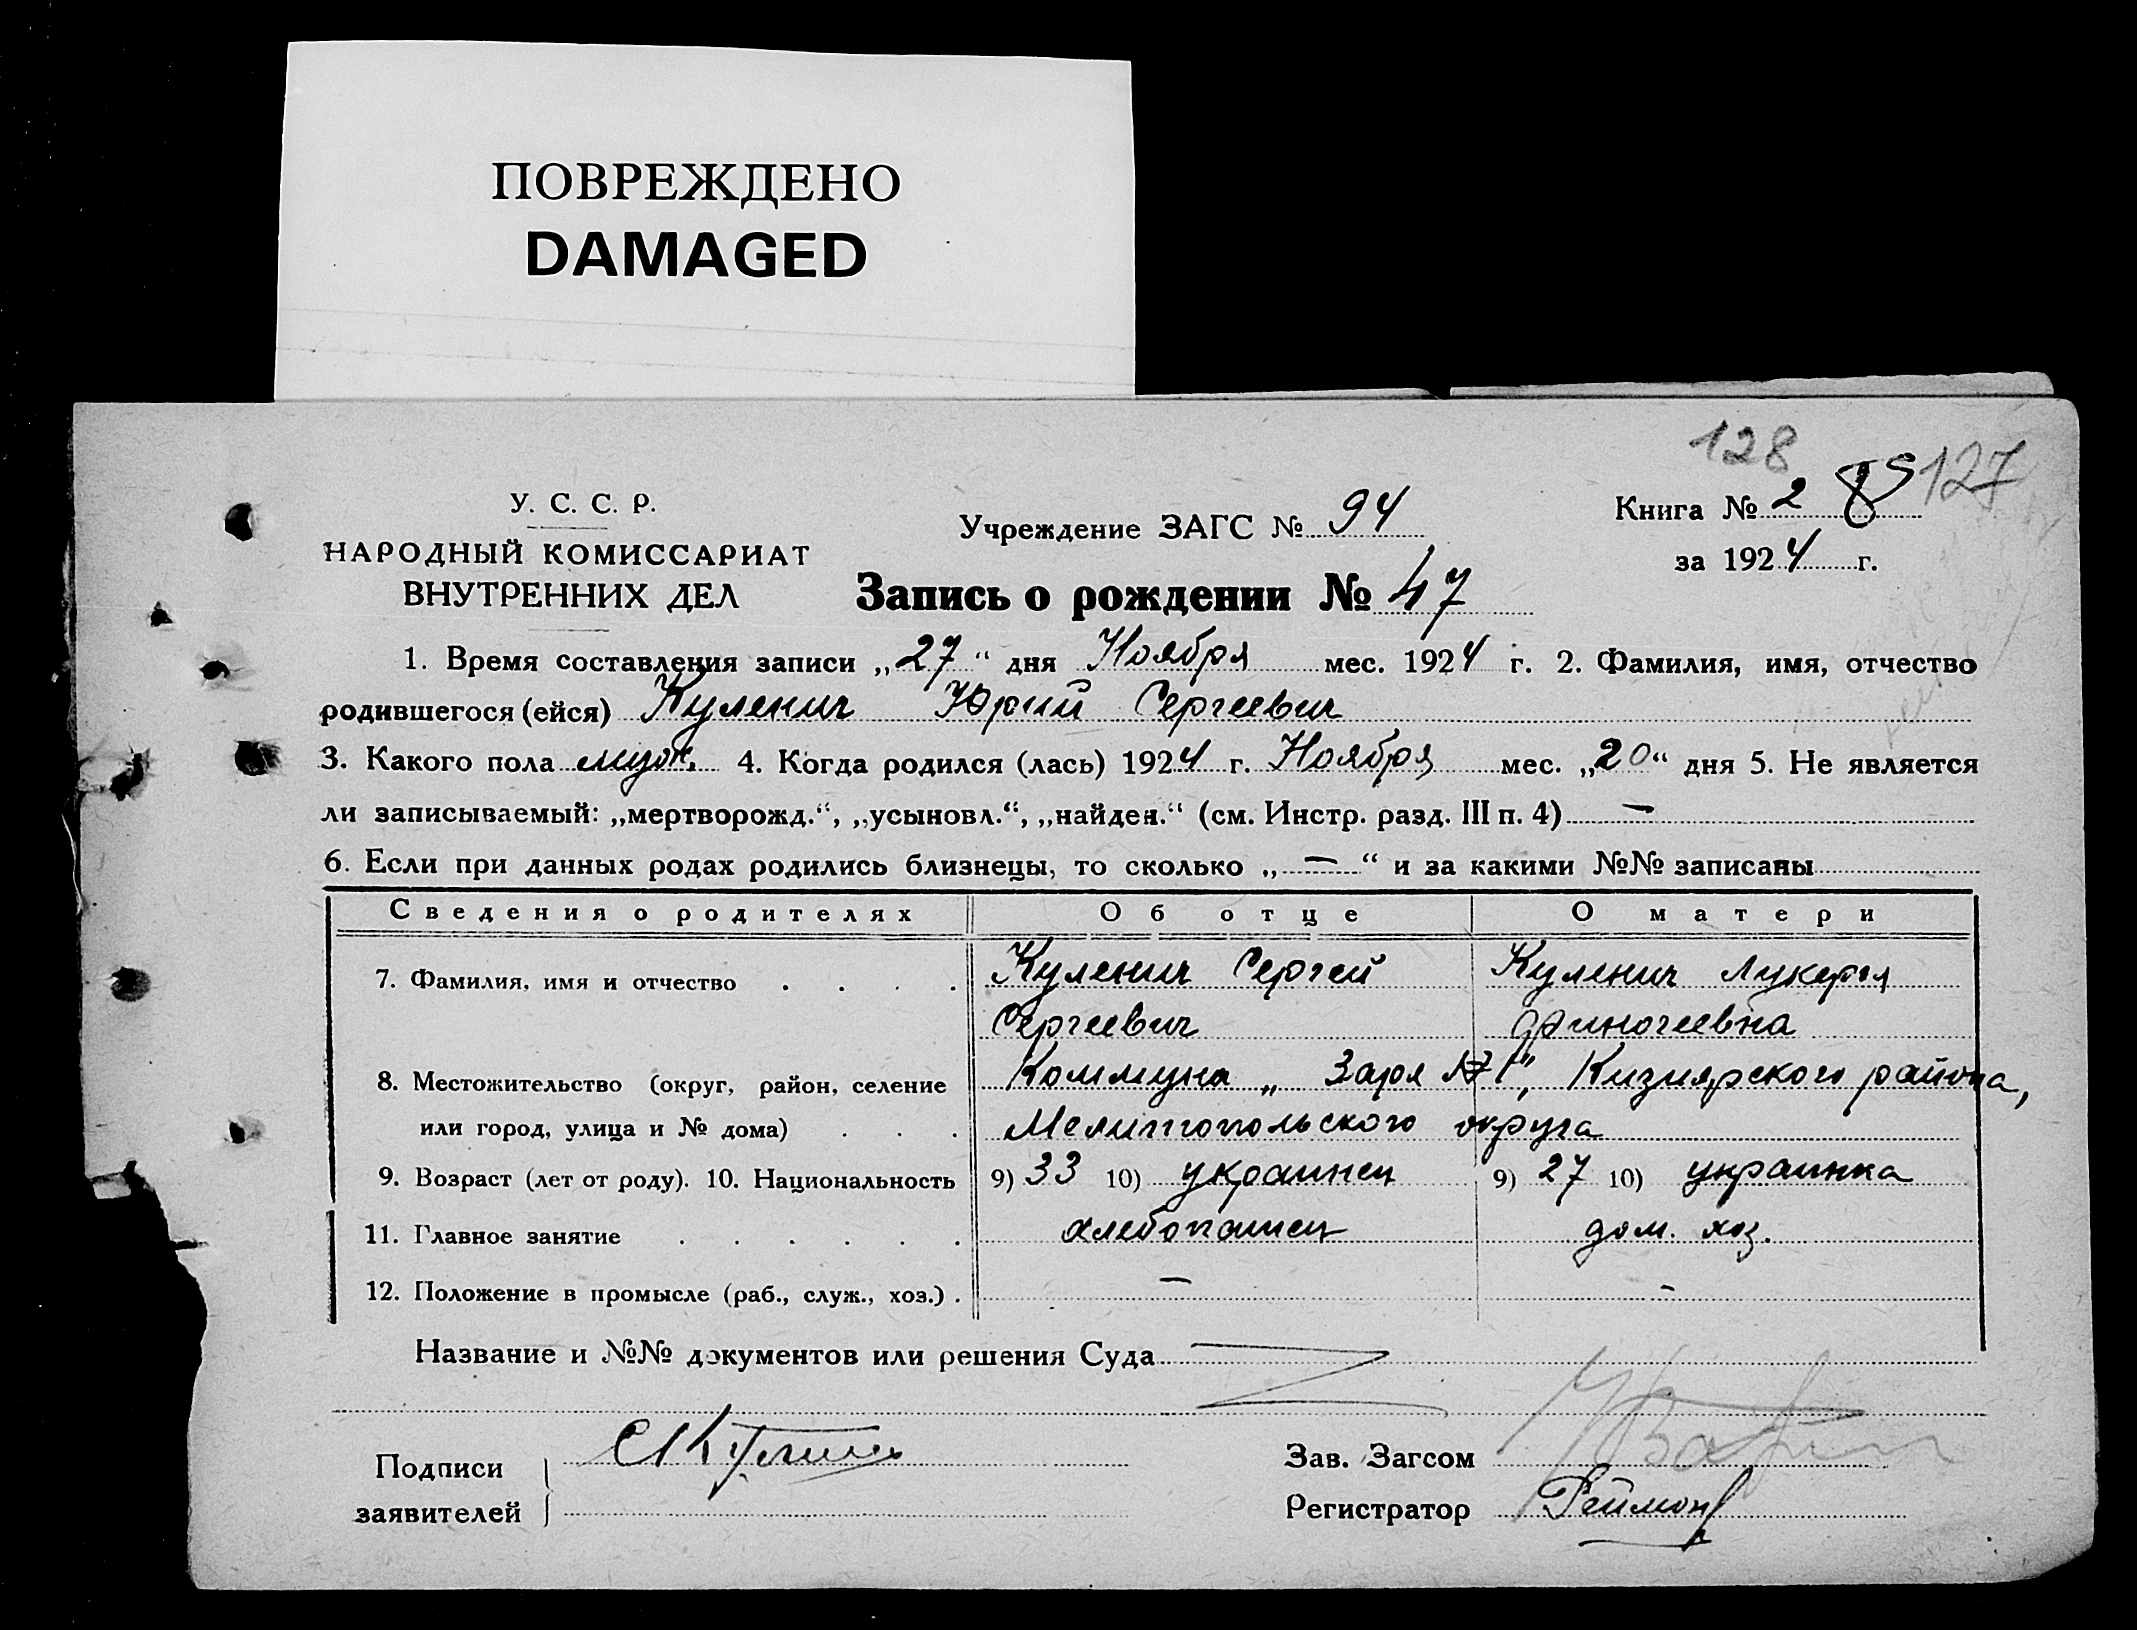 ПОВРЕЖДЕНО
DAMAGED
128
127
У. С. С. Р.
НАРОДНЫЙ КОМИССАРИАТ
ВНУТРЕННИХ ДЕЛ
Учреждение ЗАГС № 94
Книга № 2
за 1924 г.
Запись о рождении № 47
1. Время составления записи „27“ дня Ноября мес. 1924 г. 2. Фамилия, имя, отчество
родившегося (ейся) Куленич Юрий Сергеевич
3. Какого пола муж. 4. Когда родился (лась) 1924 г. Ноября мес. „20“ дня 5. Не является
ли записываемый: „мертворожд.“, „усыновл.“, „найден.“ (см. Инстр. разд. III п. 4) —
6. Если при данных родах родились близнецы, то сколько „—“ и за какими №№ записаны
Сведения о родителях Об отце О матери
7. Фамилия, имя и отчество Куленич Сергей Куленич Лукерия
Сергеевич
8. Местожительство (округ, район, селение Коммуна „Заря №1“, Кизиярского района,
или город, улица и № дома) Мелитопольского округа
9. Возраст (лет от роду). 10. Национальность 9) 33 10) украинец 9) 27 10) украинка
11. Главное занятие хлебопашец дом. хоз.
12. Положение в промысле (раб., служ., хоз.) — -
Название и №№ документов или решения Суда
Подписи
заявителей
Зав. Загсом
Регистратор